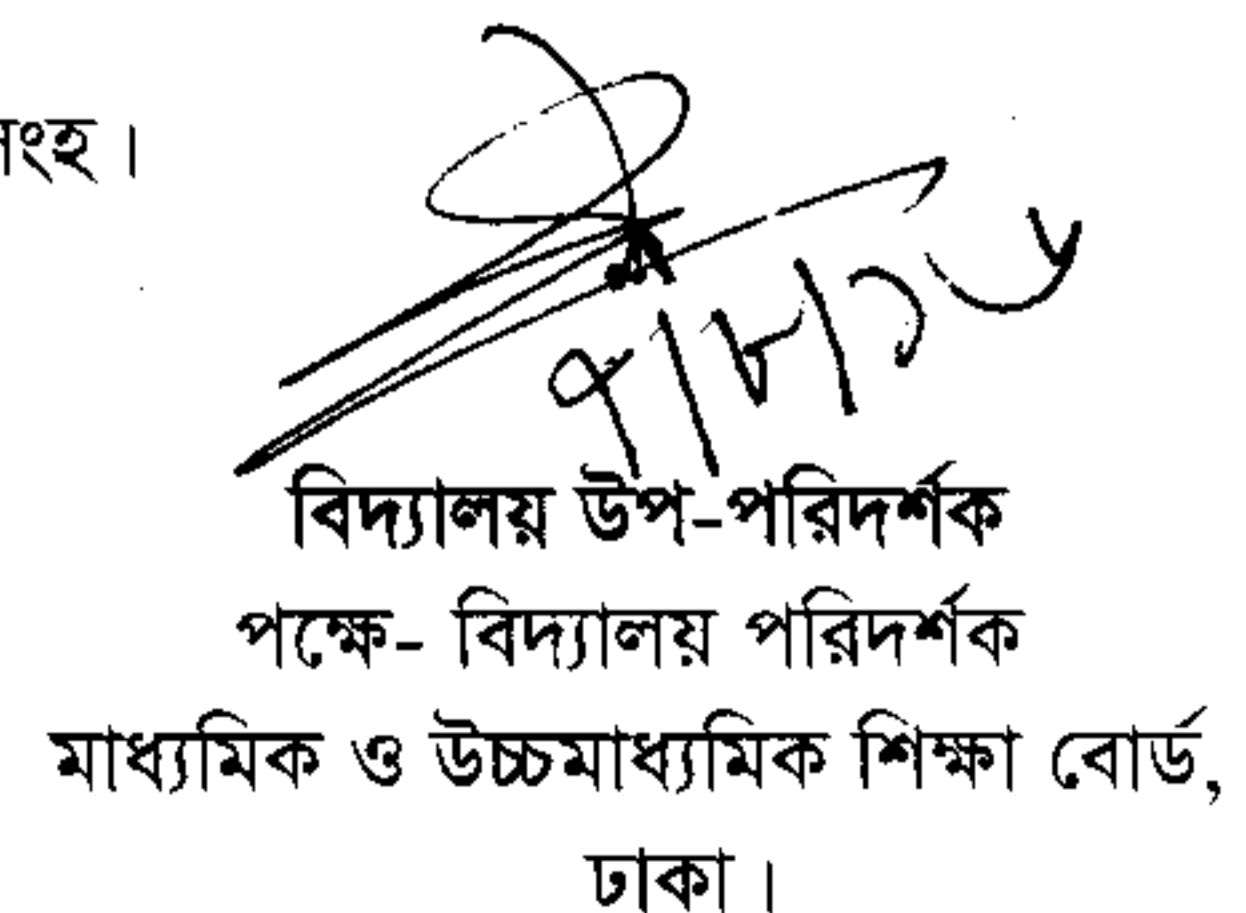 ংহ।
৭/৮/১৬
বিদ্যালয় উপ-পরিদর্শক
পক্ষে- বিদ্যালয় পরিদর্শক
মাধ্যমিক ও উচ্চমাধ্যমিক শিক্ষা বোর্ড,
ঢাকা।